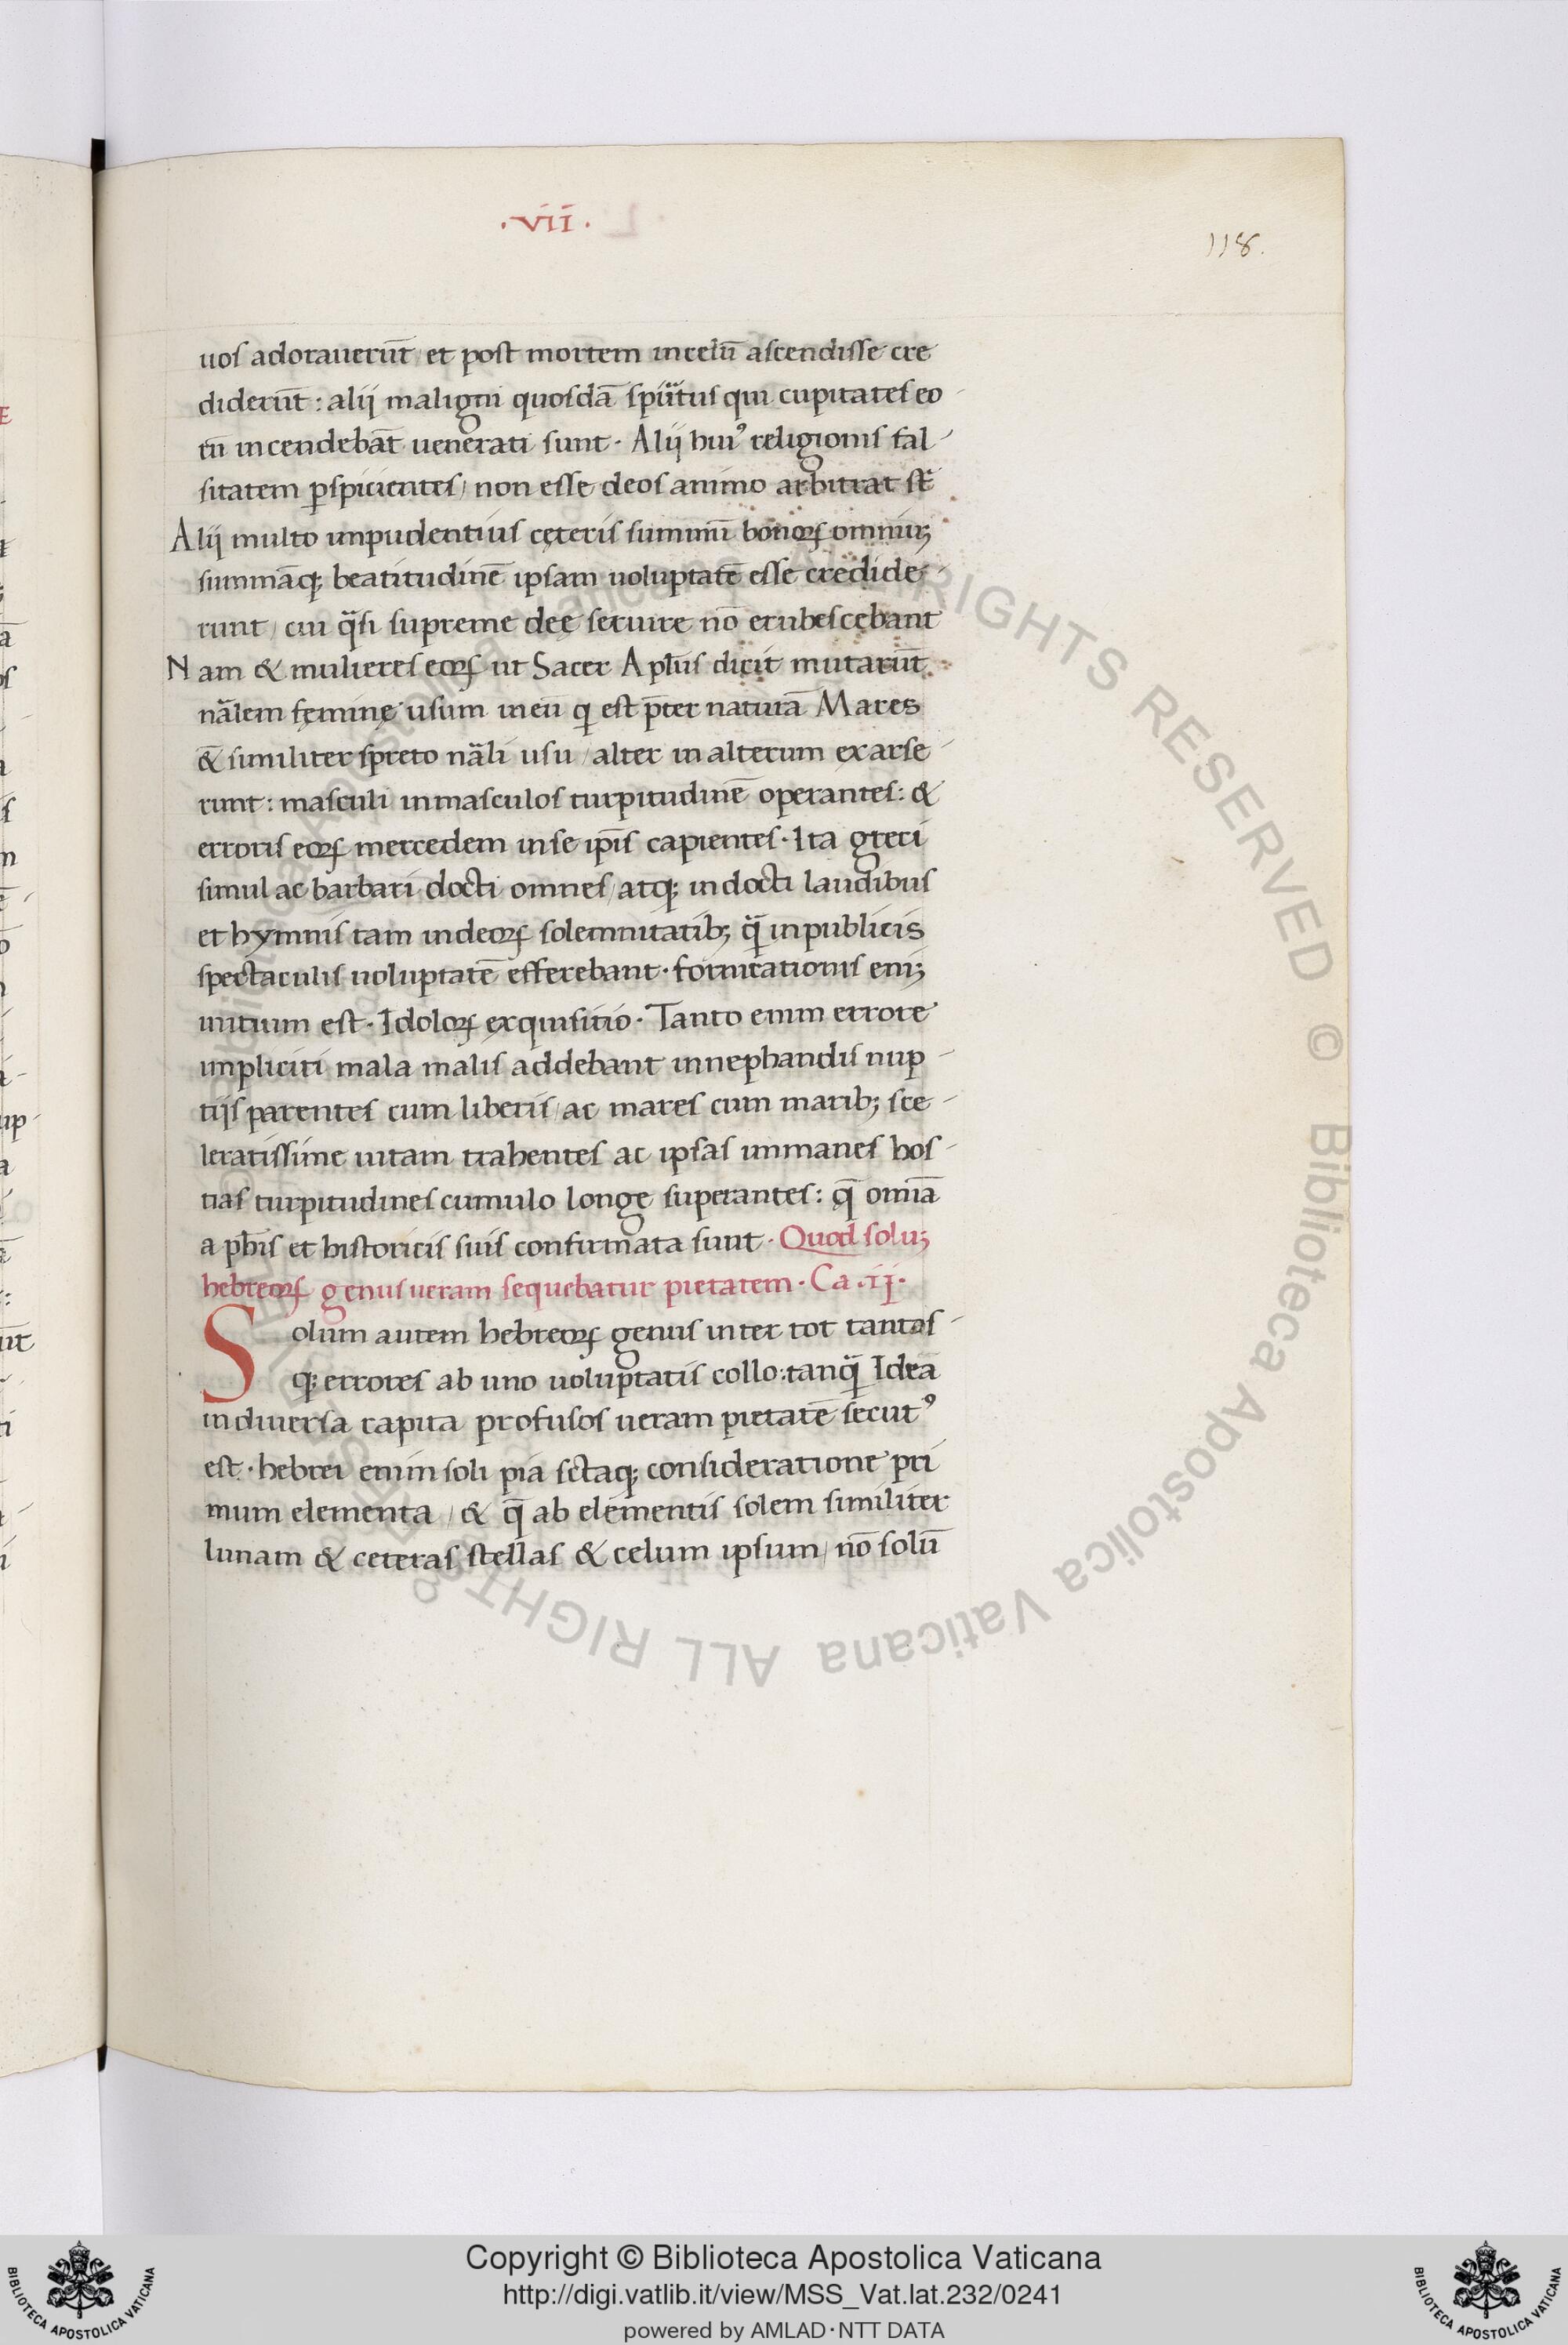 .vii.
118.
uos adorauerūt et post mortem in celū ascendisse cre
diderūt: alij maligni quosdā spūtus qui cupitates eo
rū incendebāt uenerati sunt. Alij huiꝰ religionis fal
sitatem ꝑspicientes/ non esse deos animo arbitrat st̄
Alij multo impudentius cęteris summū bonoꝝ omniuꝫ
summāqꝫ beatitudinē ipsam uoluptatē esse credide
runt/ cui q̄si supreme deę seruire nō erubescebant
Nam & mulieres eoꝝ ut Sacer Aplūs dicit mutarūt
nālem feminę usum in eū qi est p̄ter naturā Mares
& similiter spreto nāli usu/ alter in alterum exarse
runt: masculi in masculos turpitudinē operantes: &
erroris eoꝝ mercedem in se ip̄is capientes. Ita greci
simul ac barbari docti omnes/ atqꝫ indocti laudibus
et hymnis tam in deoꝝ solemnitatibꝫ q̄ in publicis
spectaculis uoluptatē efferebant. fornicationis eniꝫ
initium est. Idoloꝝ exquisitio. Tanto enim errore
impliciti mala malis addebant in nephandis nup
tijs parentes cum liberis/ ac mares cum maribꝫ sce
leratissime uitam trahentes ac ipsas immanes hos
tias turpitudines cumulo longe superantes: q̄ omīa
a ph̄is et historicis suis confirmata sunt. Quod soluꝫ
hebreoꝝ genus ueram sequebatur pietatem. Ca .ij.
Solum autem hebreoꝝ genus inter tot tantos
qꝫ errores ab uno uoluptatis collo: tanq̄ Idra
in diuersa capita profusos ueram pietatē secutꝰ
est. hebrei enim soli pia sctaqꝫ consideratione pri
mum elementa/ & q̄ ab elementis solem similiter
lunam & ceteras stellas & celum ipsum/ nō solū
Copyright © Biblioteca Apostolica Vaticana
http://digi.vatlib.it/view/MSS_Vat.lat.232/0241
powered by AMLAD·NTT DATA